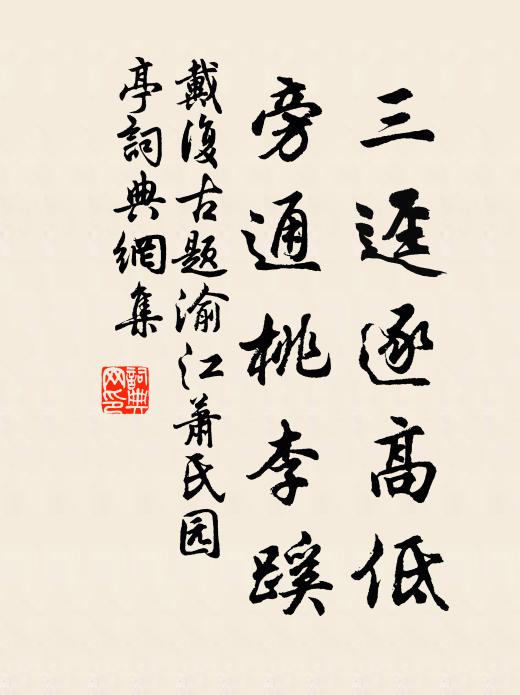 三逕逐高低
旁通桃李蹊
戴復古题渝江萧氏园
亭詞典網集
詞典網印